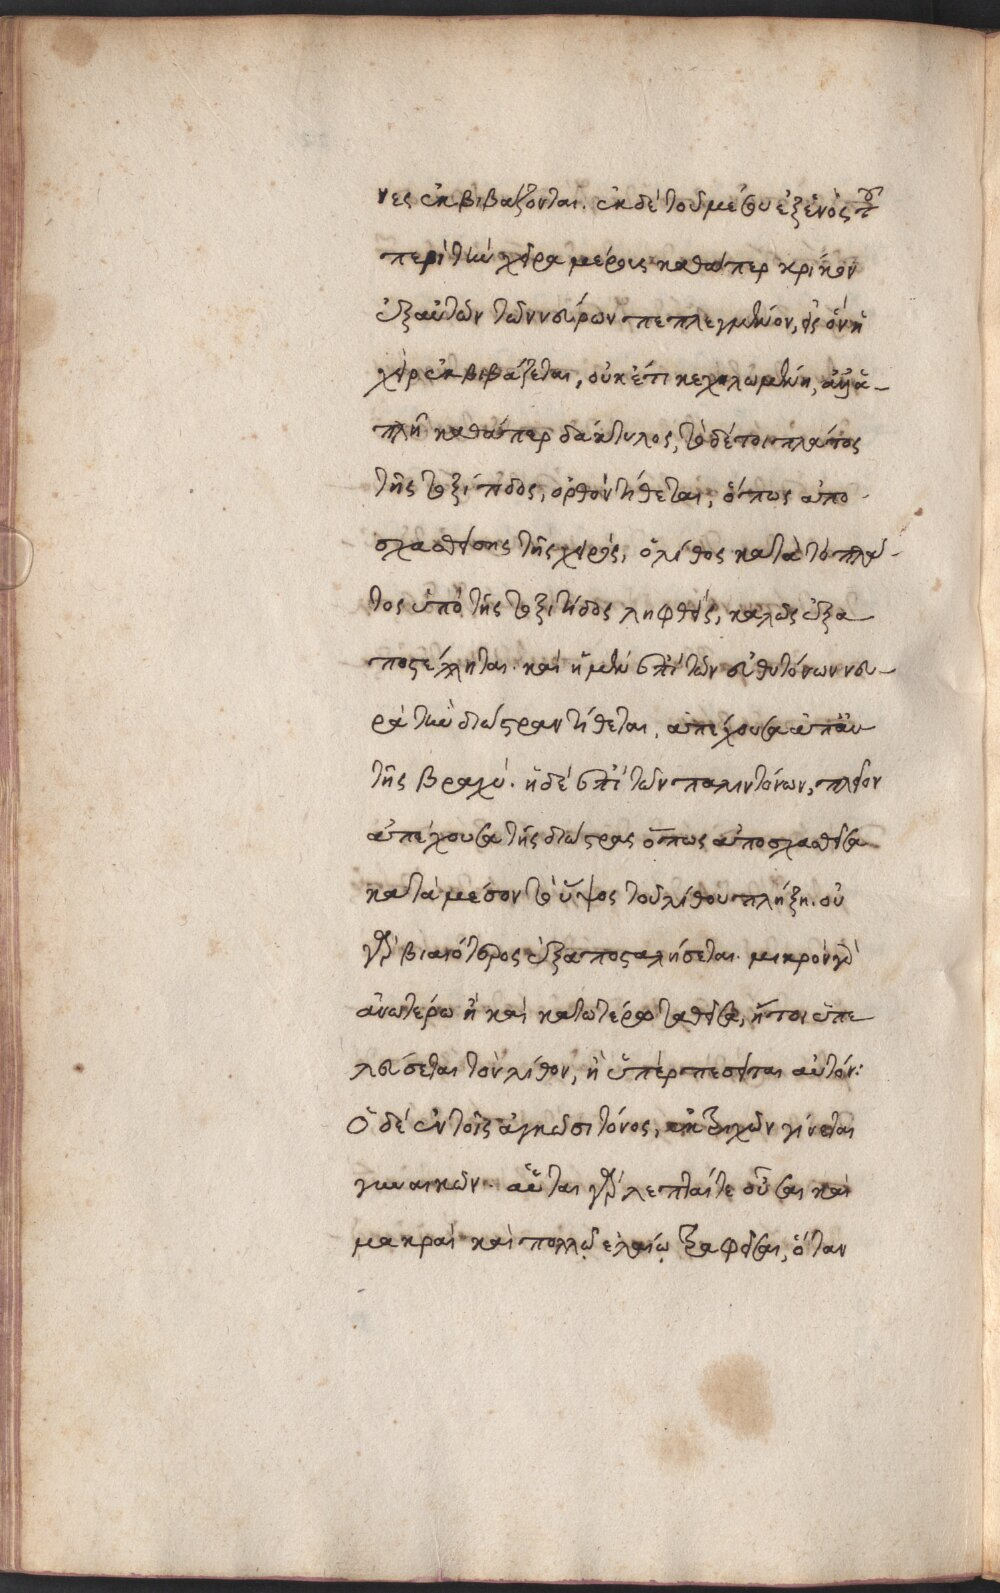 νες ἐκβιβάζονται. ἐκ δὲ τοῦ μέσου ἐξ ἑνὸς τοῦ
περὶ τὴν χεῖρα μέρους καθάπερ κρίκον
ἐξ αὐτῶν τῶν νεύρων πεπλεγμένον, εἰς ὃν ἡ
χεὶρ ἐκβιβάζεται, οὐκέτι κεχηλωμένη, ἀλλ' ἁ-
πλῆ καθάπερ δάκτυλος, τὸ δέ τοι πλάτος
τῆς τοξίτιδος, ὀρθὸν τίθεται, ὅπως ἀπο-
σχασθείσης τῆς χειρός, ὁ λίθος κατὰ τὸ πλά-
τος ὑπὸ τῆς τοξίτιδος ληφθείς, καλῶς ἐξα-
ποστέλληται. καὶ ἡ μὲν ἐπὶ τῶν εὐθυτόνων νευ-
ρὰ τὴν διώστραν τίθεται, ἀπέχουσα ἀπ' αὐ
τῆς βραχύ. ἡ δὲ ἐπὶ τῶν παλιντόνων, πλεῖον
ἀπέχουσα τῆς διώστρας ὅπως ἀποσχασθεῖσα
κατὰ μέσον τὸ ὕψος τοῦ λίθου πλήξη. οὐ
γὰρ βιαιότερος ἐξαποσταλήσεται. μικρὸν γὰρ
ἀνωτέρω ἢ καὶ κατωτέρω ταθεῖσα, ἤτοι ὑπε
λεύσεται τὸν λίθον, ἢ ὑπερπεσεῖται αὐτόν:
Ὁ δὲ ἐν τοῖς ἀγκῶσι τόνος, ἐκ τριχῶν γίνεται
γυναικῶν. αὗται γὰρ λεπταί τε οὖσαι καὶ
μακραὶ καὶ πολλῷ ἐλαίῳ τραφεῖσαι, ὅταν